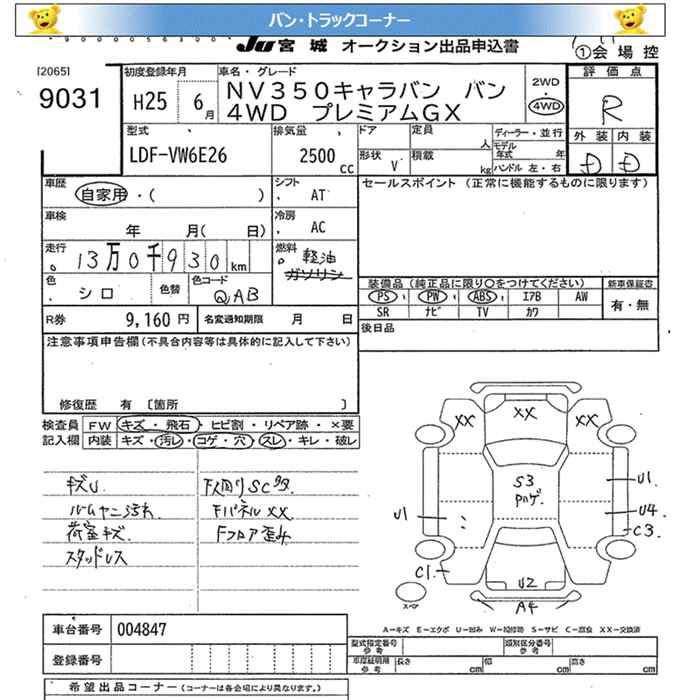 バン・トラックコーナー
JU 宮 城 オークション出品申込書
①会 場 控
[2065]
9031
初度登録年月
H25 6月
車名・グレード
NV350キャラバン バン
4WD プレミアムGX
2WD
・
4WD
評 価 点
R
外 装 内 装
D D
型式
LDF-VW6E26
排気量
2500 cc
ドア
定員 人
形状 V
積載 kg
ディーラー・並行
モデル年式 年
ハンドル 左・右
車歴
自家用・( )
シフト
AT
車検
年 月( 日)
冷房
AC
走行
13万0千930km
燃料
軽油
ガソリン
色
シロ
色替
色コード
QAB
R券 9,160 円
名変通知期限 月 日
セールスポイント (正常に機能するものに限ります)
装備品(純正品に限り○をつけてください)
PS PW ABS エアB AW
SR ナビ TV カワ
新車保証書
有・無
後日品
注意事項申告欄(不具合内容等は具体的に記入して下さい)
修復歴 有 〔箇所 〕
検査員記入欄
FW キズ・飛石・ヒビ割・リペア跡・×要
内装 キズ・汚レ・コゲ・穴・スレ・キレ・破レ
キズU
ルームヤニ汚れ
荷室キズ
スタッドレス
下廻りSC多
FパネルXX
Fフロア歪み
XX
XX
XX
S3
Pハゲ
U1
U1
U4
C3
C1
U2
A4
スペア
A-キズ E-エクボ U-凹み W-補修跡 S-サビ C-腐食 XX-交換済
車台番号 004847
登録番号
型式指定番号
参 考
類別区分番号
参 考
車庫証明用
参 考
長さ cm
幅 cm
高さ cm
希望出品コーナー(コーナーは各会場により異なります。)